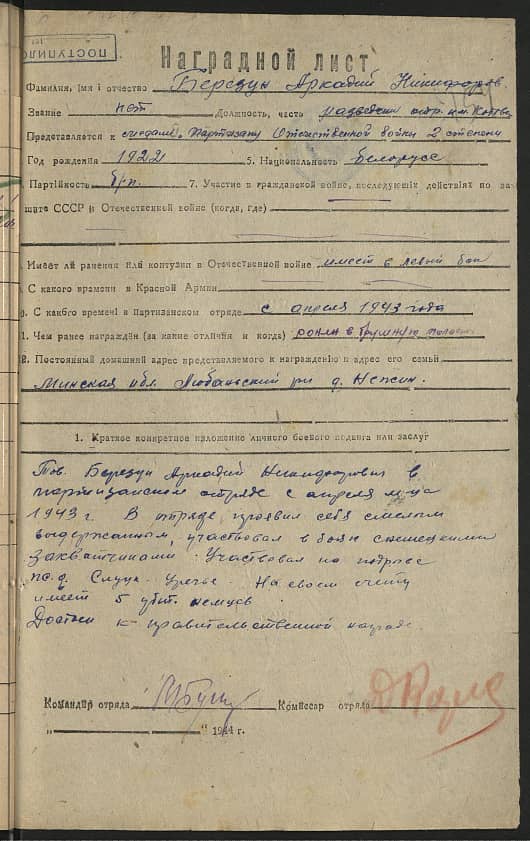 ПОСТУПИЛО
Наградной лист
Фамилия, имя и отчество Березун Аркадий Никифоров.
Звание нет Должность, часть разведчик отр. им.
Представляется к медали „Партизану Отечественной войны 2 степени
Год рождения 1922 5. Национальность белорусс
Партийность б/п. 7. Участие в гражданской войне, последующих действиях по за-
щите СССР и Отечественной войне (когда, где)
Имеет ли ранения или контузии в Отечественной войне имеет в левый бок
С какого времени в Красной Армии
С какого времени в партизанском отряде с апреля 1943 года
1. Чем ранее награждён (за какие отличия и когда) ранен в брюшную
2. Постоянный домашний адрес представляемого к награждению и адрес его семьи
Минская обл. Любаньский р-н д.
1. Краткое конкретное изложение личного боевого подвига или заслуг
Тов. Березун Аркадий Никифорович в
партизанском отряде с апреля м-ца
1943 г. В отряде проявил себя смелым
выдержанным, участвовал в боях с немецкими
захватчиками. Участвовал на подрыве
ж.д. Слуцк - Уречье. На своем счету
имеет 5 убит. немцев.
Достоин к правительственной награде.
Командир отряда Комиссар отряда
„ “ 1944 г.